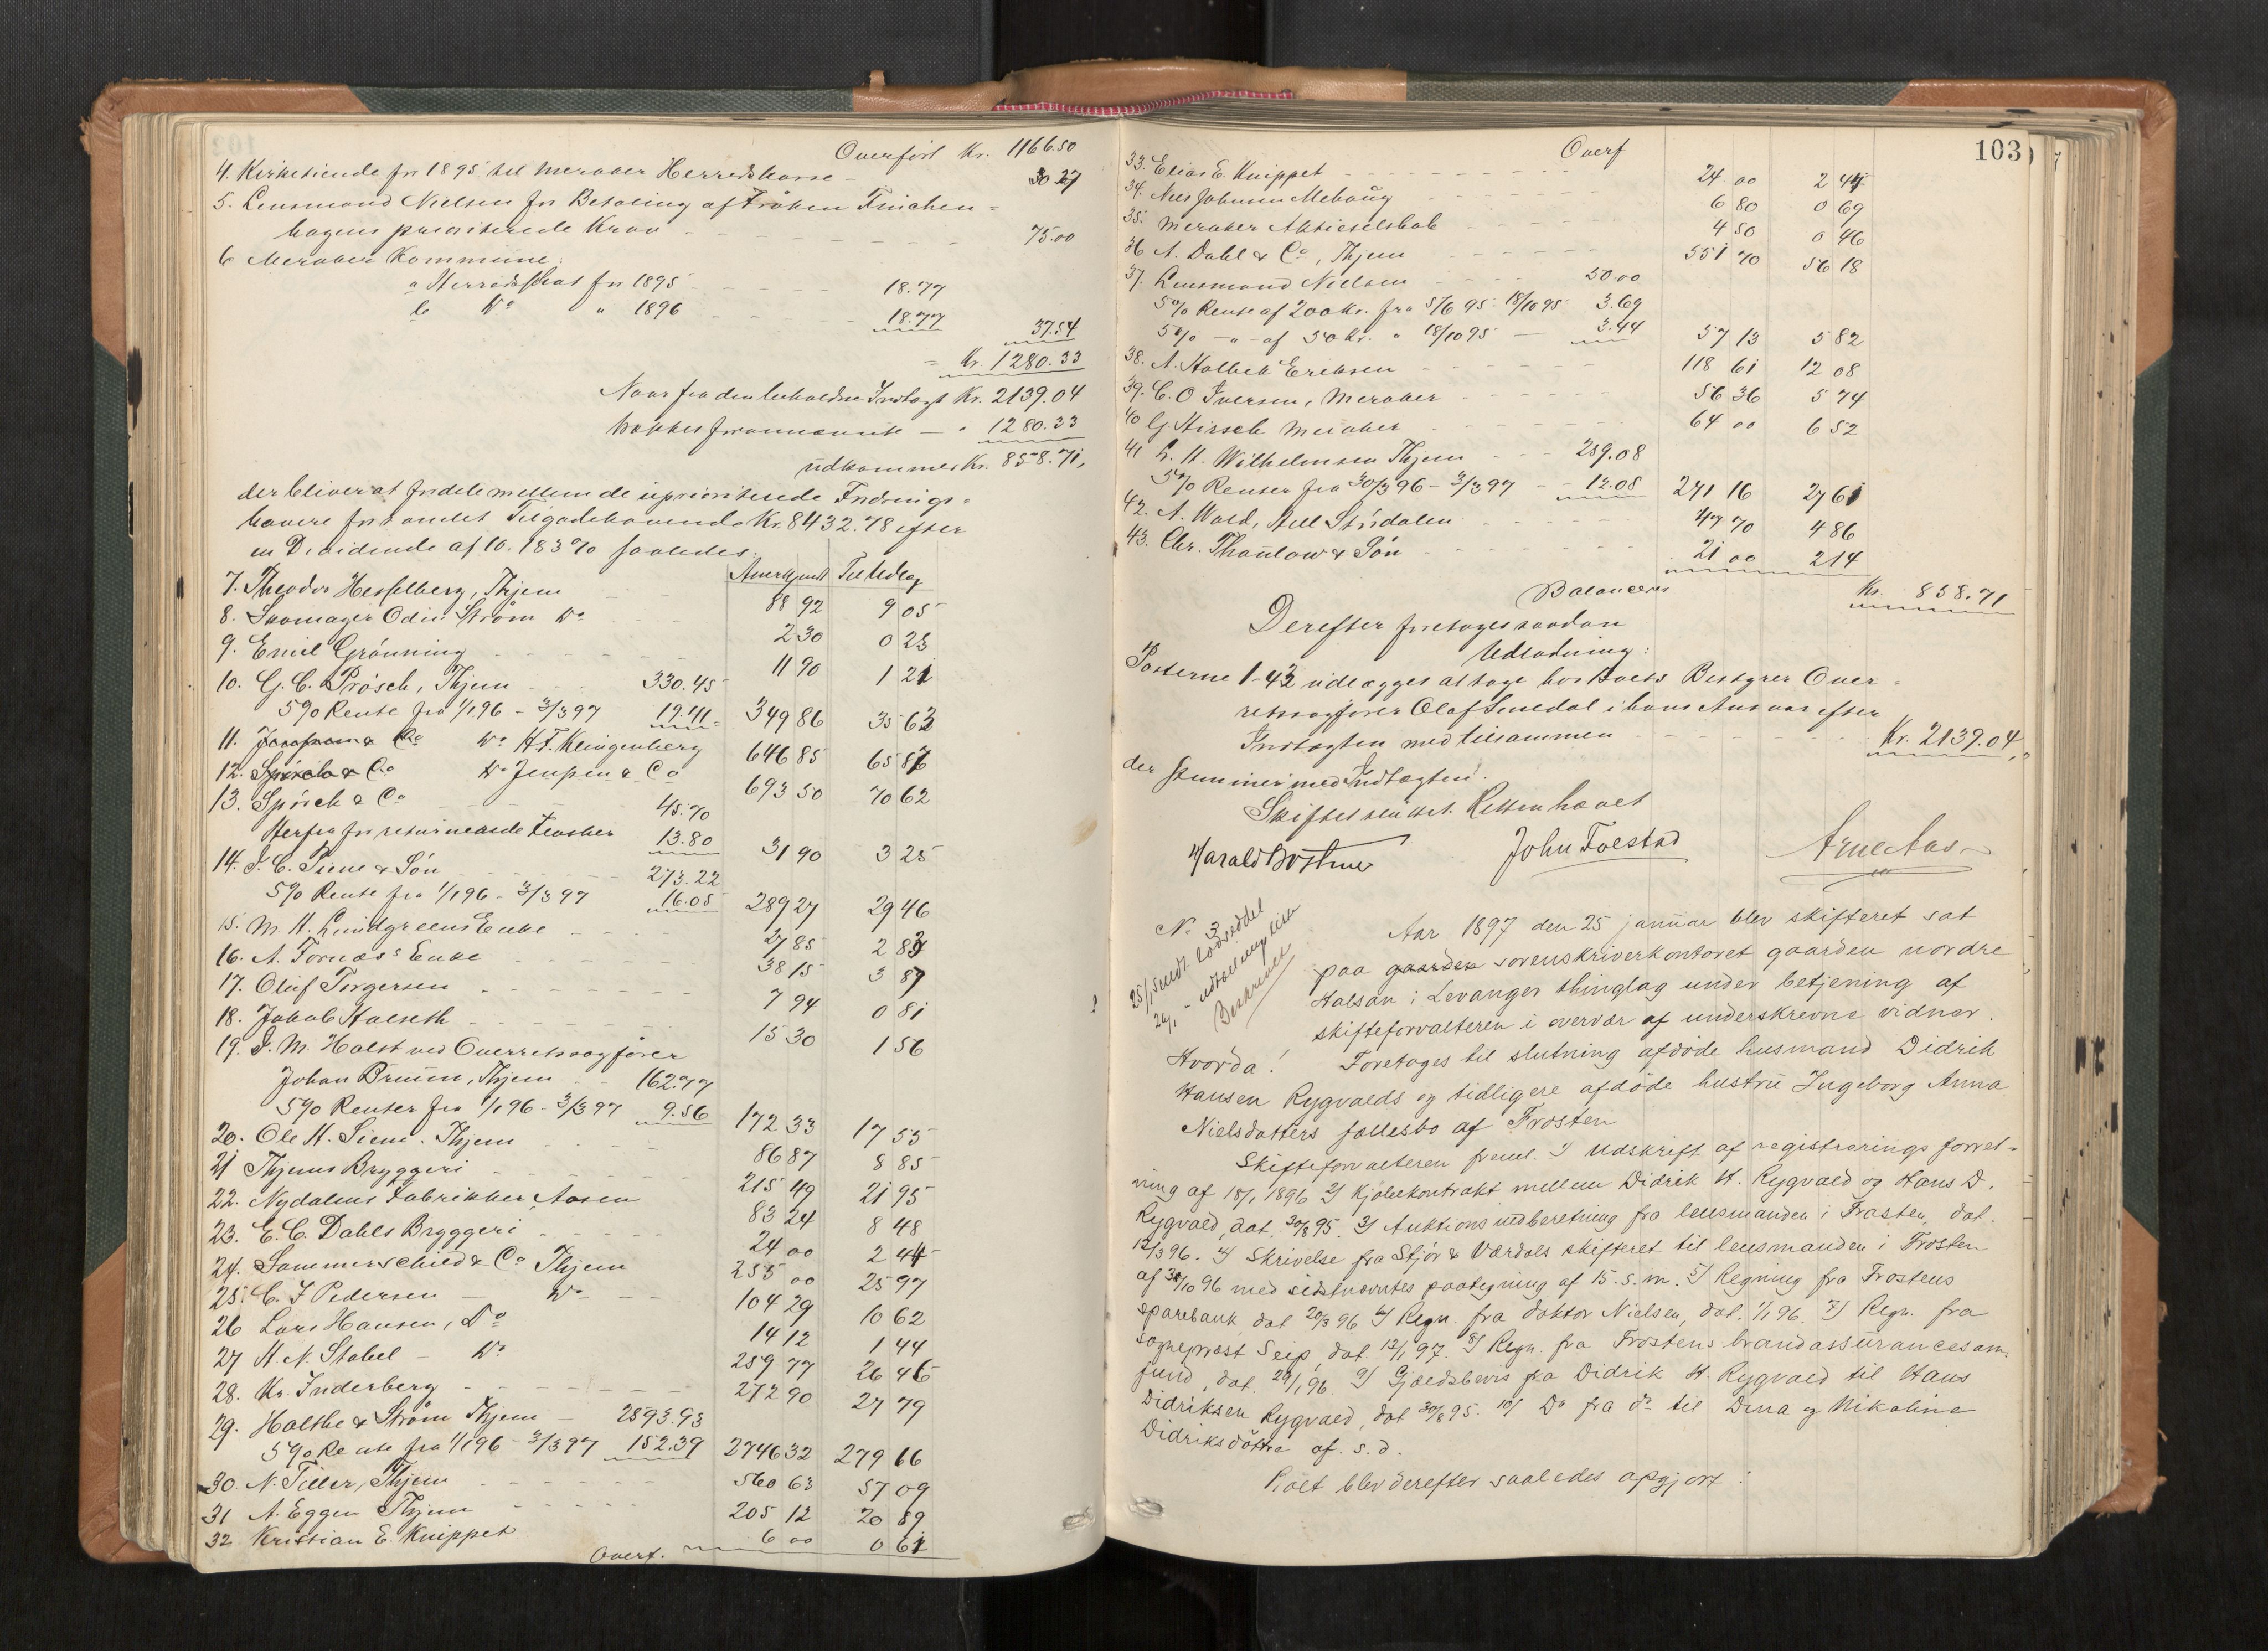 Overført Kr. 1166.50
4. Kirketiende for 1895 til Meraker Herredskasse - 30.27
5. Lensmand Nielsen for Betaling af Frøken Finchen-
hagens prioriterede Krav - - - 75.00
6 Meraker Kommune:
a Herredsskat for 1895 - - 18.77
b Do " 1896 - - 18.77 37.54
= Kr. 1280.33
Naar fra den beholdne Indtægt Kr. 2139.04
trækkes forannævnte - " 1280.33
udkommer Kr. 858.71,
der bliver at fordele mellem de uprioriterede Fordrings-
havere for anslet Tilgodehavende Kr. 8432.78 efter
en Dividende af 10.183 % saaledes:
Anerkjendt Til Udlæg
7. Theodor Hesselberg, Thjem - 88 92 9 05
8. Skomager Odin Strøm Do - - 2 30 0 23
9. Emil Grønning - - - 11 90 1 21
10. G. C. Prøsch, Thjem - - 330.45
5% Rente fra 1/1 96 - 3/3 97 19.41 349 86 35 63
11. Do H. F. Klingenberg 646 85 65 87
12. Spørck & Co Do Jenssen & Co 693 50 70 62
13. Spørck & Co - - - 45.70
Herfra for returnerede Flasker 13.80 31 90 3 25
14. I. C. Piene & Søn - - - 273.22
5% Rente fra 1/1 96 - 3/3 97 16.05 289 27 29 46
15. M. H. Lundgreens Enke - - - 27 85 2 83
16. A. Fornæss Enke - - - 38 15 3 89
17. Oluf Torgersen - - - 7 94 0 81
18. Jakob Halseth - - - 15 30 1 56
19. I. M. Holst ved Overretssagfører
Johan Bruun, Thjem - - 162.77
5% Renter fra 1/1 96 - 3/3 97 9.56 172 33 17 55
20. Ole H. Siem. Thjem - - - 86 87 8 85
21 Thjems Bryggeri - - - 215 49 21 95
22. Nydalens Fabrikker, Aasen 83 24 8 48
23. E. C. Dahls Bryggeri - - - 24 00 2 44
24. Sommerschield & Co Thjem 255 00 25 97
25. C. I Pedersen - Do - - 104 29 10 62
26 Lars Hansen, Do 14 12 1 44
27 H. N. Stabel - Do 259 77 26 46
28. Kr. Inderberg - - - 272 90 27 79
29. Halthe & Strøm Thjem - 2593.93
5% Rente fra 1/1 96 - 3/3 97 152.39 2746 32 279 66
30. N. Tiller, Thjem - - - 560 63 57 09
31 A. Eggen Thjem - - - 205 12 20 89
32 Kristian E. Knippet 6 00 0 61
Overf.
103
Overf
33. Elias E. Knippet - - - 24 00 2 44
34. Nils Johnsen Mehaug - - - 6 80 0 69
35. Meraker Aktieselskab - - - 4 50 0 46
36 A. Dahl & Co, Thjem - - - 551 70 56 18
37. Lensmand Nielsen - - - 50.00
5% Rente af 200 Kr. fra 5/6 95 - 18/10 95 3.69
5% - " - af 50 Kr. " 18/10 95 - 3.44 57 13 5 82
38. A. Holbek Eriksen - - - 118 61 12 08
39. C. O Iversen, Meraker - - - 56 36 5 74
40 G. Hirsch Meraker - - - 64 00 6 52
41 L. H. Wilhelmsen Thjem - - - 259.08
5% Renter fra 30/3 96 - 3/3 97 - - 12.08 271 16 27 61
42. A. Wold, Hell Stjørdalen - - - 47 70 4 86
43. Chr. Thaulow & Søn - - - 21 00 2 14
Balancerer Kr. 858.71
Derefter foretages saadan
Udlodning:
Posterne 1-43 udlægges at tage hos Boets Bestyrer Over-
retssagfører Olaf Smedal i hans Ansvar efter
Indtægten med tilsammen - - - Kr. 2139.04,
der stemmer med Indtægten.
Skiftet sluttet. Retten hævet
Harald Bøthner John Foestad Arne Aas
No 3
25/1 sendt lodseddel
26/1 - udtællingsliste
Beskrevet
Aar 1897 den 25 januar blev skifteret sat
paa gaarden sorenskriverkontoret gaarden nordre
Halsan i Levanger thinglag under betjening af
skifteforvalteren i overvær af underskrevne vidner.
Hvorda! Foretoges til slutning afdøde husmand Didrik
Hansen Rygvolds og tidligere afdøde hustru Ingeborg Anna
Nielsdatters fællesbo af Frosten
Skifteforvalteren freml. 1) Udskrift af registreringsforret-
ning af 18/1 1896 2) Kjøbekontrakt mellem Didrik H. Rygvold og Hans D.
Rygvold, dat. 30/8 95. 3) Auktionsindberetning fra lensmanden i Frosten, dat.
12/3 96. 4) Skrivelse fra Stjør & Værdals skifteret til lensmanden i Frosten
af 30/10 96 med sidstnævntes paategning af 15. s. m. 5) Regning fra Frostens
sparebank, dat. 20/3 96 6) Regn. fra doktor Nielsen, dat. 1/1 96. 7) Regn. fra
sogneprest Seip, dat. 12/1 97. 8) Regn. fra Frostens brandassurancesam-
fund, dat. 29/1 96. 9) Gjældsbevis fra Didrik H. Rygvold til Hans
Didriksen Rygvold, dat 30/8 95. 10) Do fra do til Dina og Nikoline
Didriksdøttre af. s. d.
Boet blev derefter saaledes opgjort: